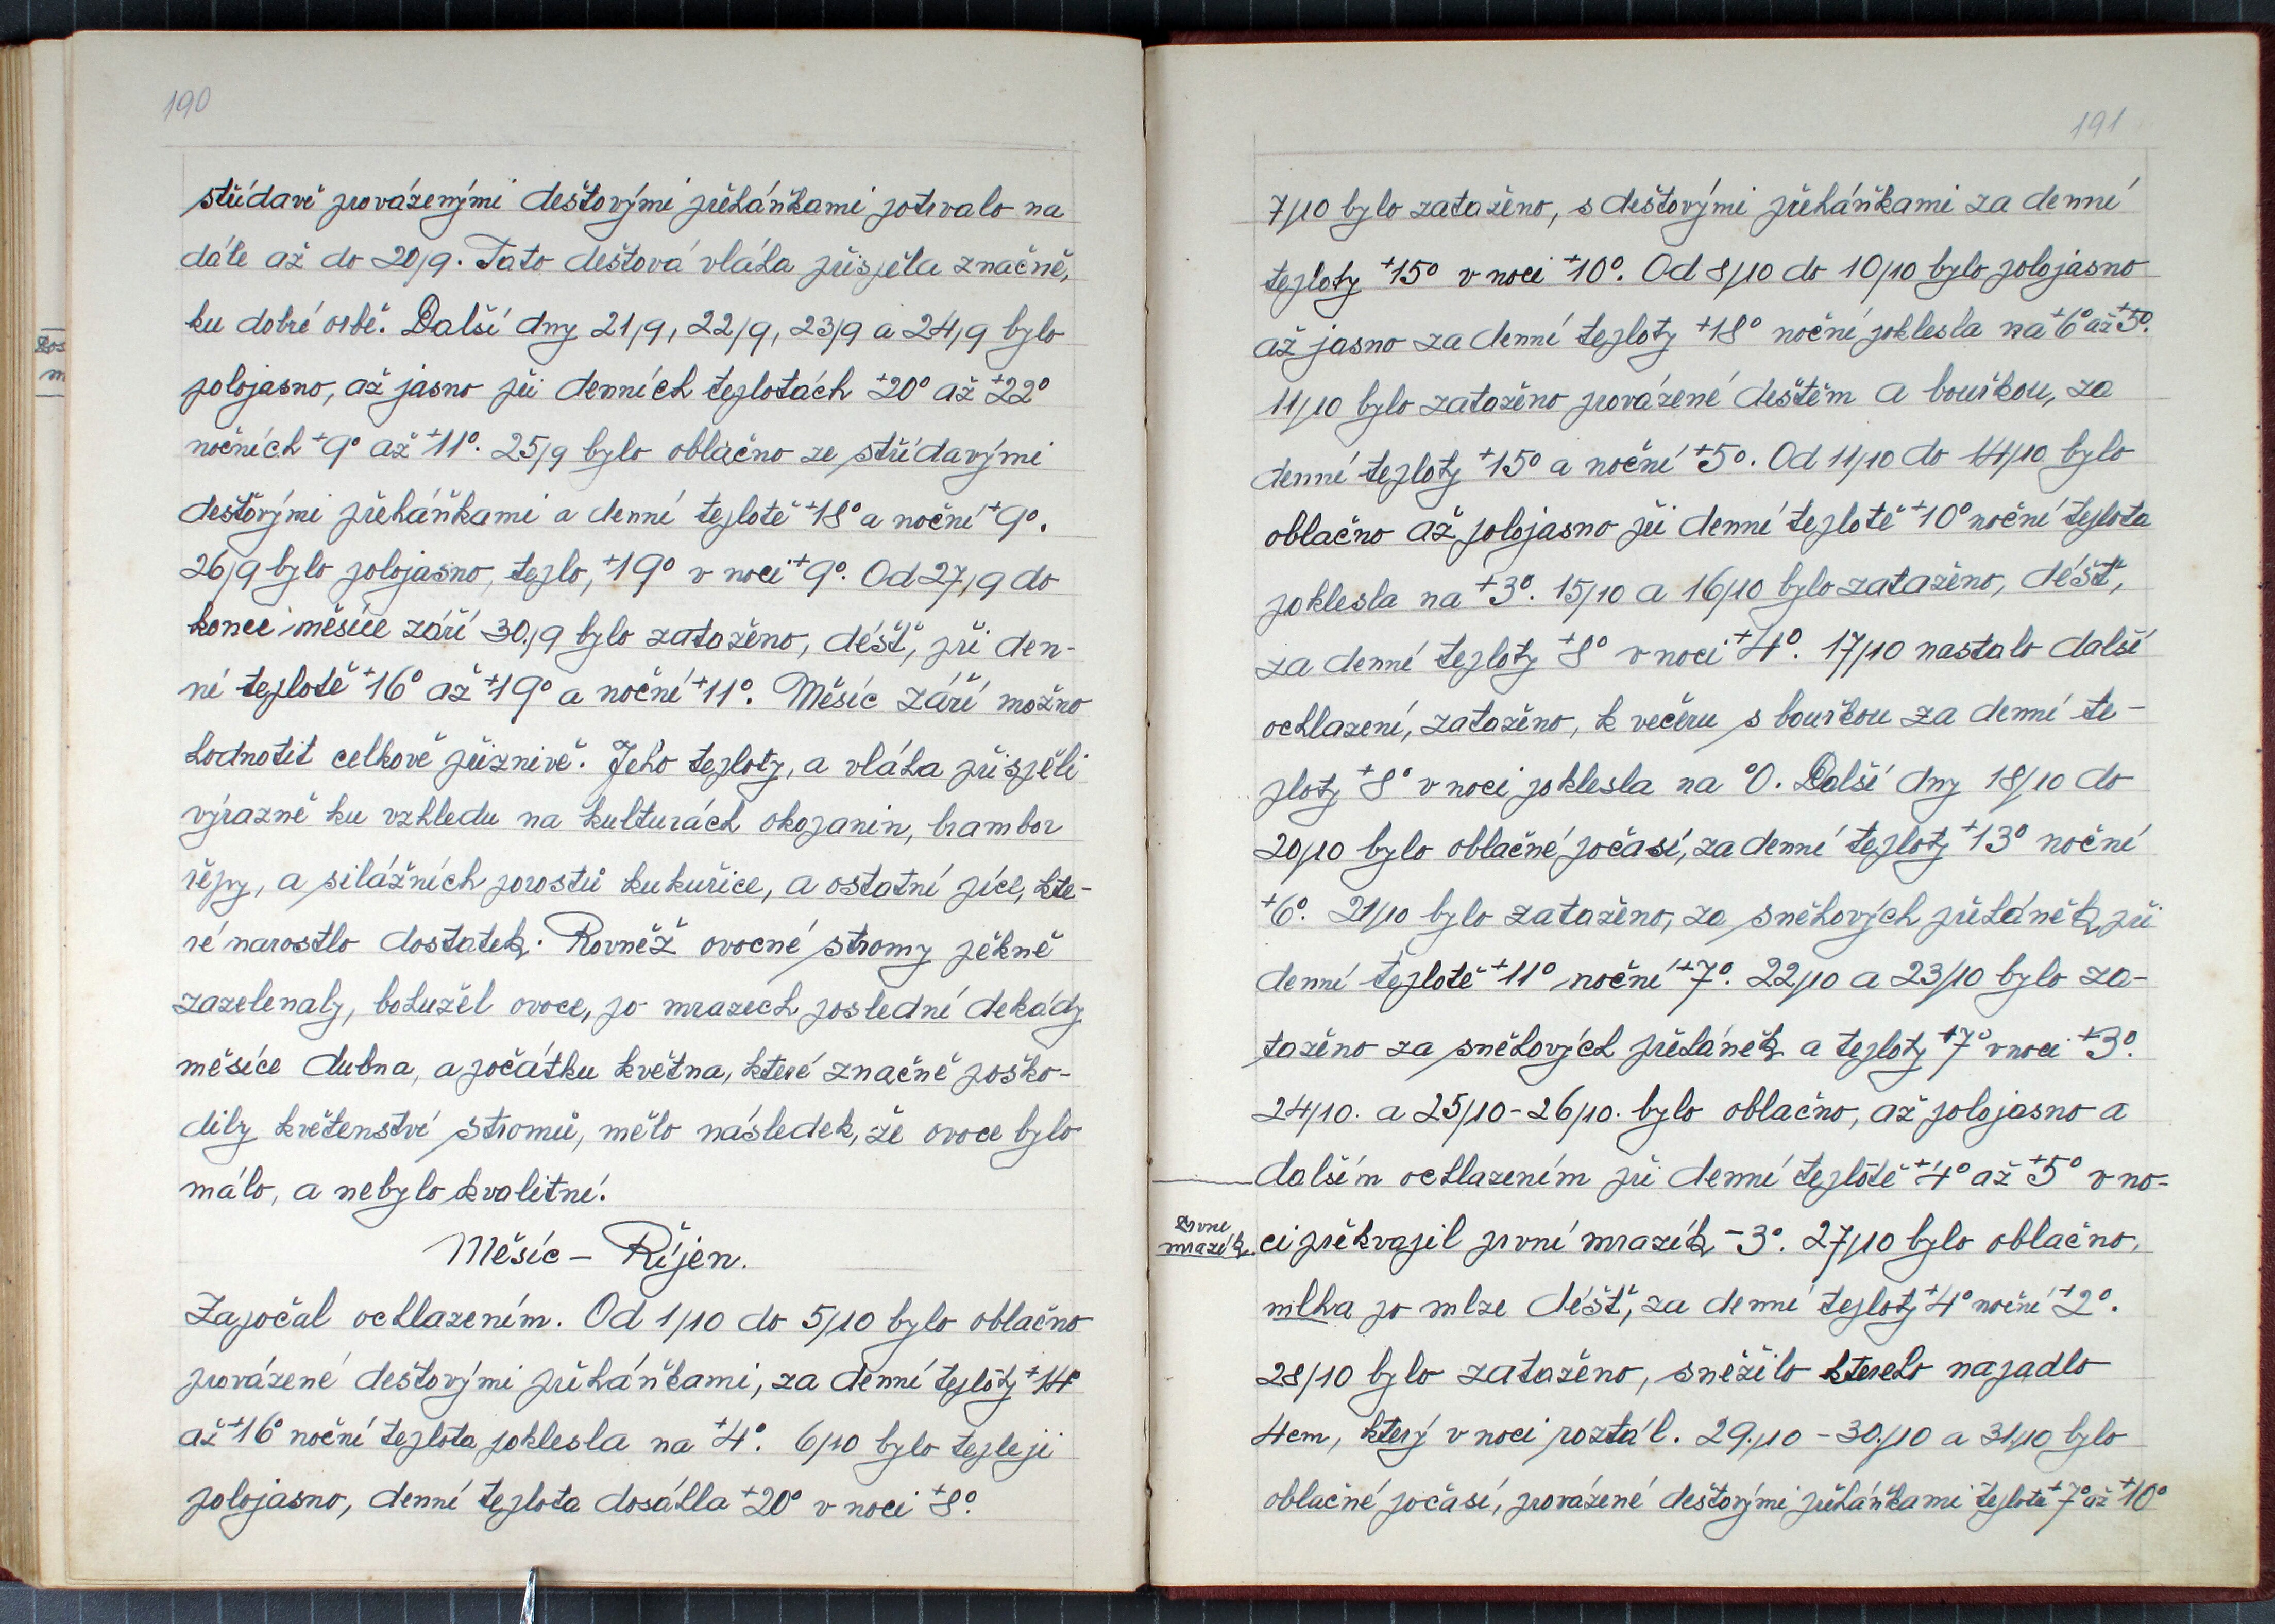 190
střídavě provázenými dešťovými přeháňkami potrvalo na
dále až do 20/9. Tato dešťová vláha přispěla značně,
ku dobré orbě. Další dny 21/9, 22/9, 23/9 a 24/9 bylo
polojasno, až jasno při denních teplotách +20° až +22°
nočních +9° až +11°. 25/9 bylo oblačno ze střídavými
dešťovými přeháňkami a denní teplotě +18° a noční +9°.
26/9 bylo polojasno, teplo, +19° v noci +9°. Od 27/9 do
konce měsíce září 30./9 bylo zataženo, déšť, při den-
ní teplotě +16° až +19° a noční +11°. Měsíc září možno
hodnotit celkově příznivě. Jeho teploty, a vláha přispěli
výrazně ku vzhledu na kulturách okopanin, brambor
řepy, a silážních porostů kukuřice, a ostatní píce, kte-
ré narostlo dostatek. Rovněž ovocné stromy pěkně
zazelenaly, bohužel ovoce, po mrazech poslední dekády
měsíce dubna, a počátku května, které značně poško-
dily květenství stromů, mělo následek, že ovoce bylo
málo, a nebylo kvalitní.
Měsíc - Říjen.
Započal ochlazením. Od 1/10 do 5/10 bylo oblačno
provázené dešťovými přeháňkami, za denní teploty +14°
až +16° noční teplota poklesla na +4°. 6/10 bylo tepleji
polojasno, denní teplota dosáhla +20° v noci +8°.
191
7/10 bylo zataženo, s dešťovými přeháňkami za denní
teploty +15° v noci +10°. Od 8/10 do 10/10 bylo polojasno
až jasno za denní teploty +18° noční poklesla na +6° až +5°.
11/10 bylo zataženo provázené deštěm a bouřkou, za
denní teploty +15° a noční +5°. Od 11/10 do 14/10 bylo
oblačno až polojasno při denní teplotě +10° noční teplota
poklesla na +3°. 15/10 a 16/10 bylo zataženo, déšť,
za denní teploty +8° v noci +4°. 17/10 nastalo další
ochlazení, zataženo, k večeru s bouřkou za denní te-
ploty +8° v noci poklesla na °0. Další dny 18/10 do
20/10 bylo oblačné počasí, za denní teploty +13° noční
+6°. 21/10 bylo zataženo, za sněhových přeháněk při
denní teplotě +11° noční +7°. 22/10 a 23/10 bylo za-
taženo za sněhových přeháněk a teploty +7° v noci +3°.
24/10. a 25/10 - 26/10. bylo oblačno, až polojasno a
dalším ochlazením při denní teplotě +4° až +5° v no-
První
mrazík.
ci překvapil první mrazík -3°. 27/10 bylo oblačno,
mlha po mlze déšť, za denní teploty +4° noční +2°.
28/10 bylo zataženo, sněžilo kterého napadlo
4cm, který v noci roztál. 29./10 - 30./10 a 31/10 bylo
oblačné počasí, provázené dešťovými přeháňkami teplotě +7° až +10°